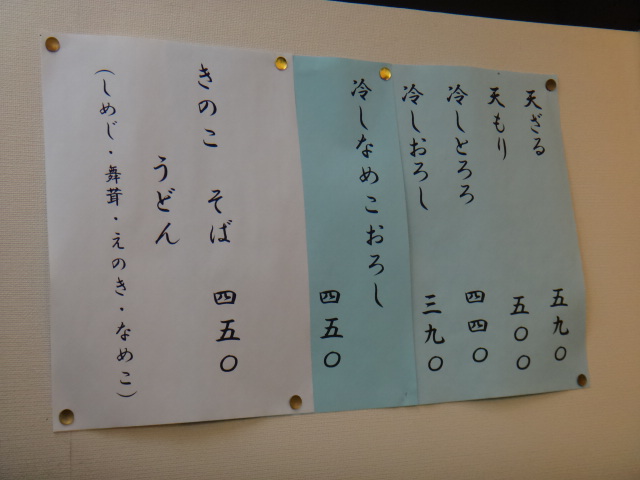 天ざる 五九〇
天もり 五〇〇
冷しとろろ 四四〇
冷しおろし 三九〇
冷しなめこおろし 四五〇
きのこ そば 四五〇
うどん
（しめじ・舞茸・えのき・なめこ）